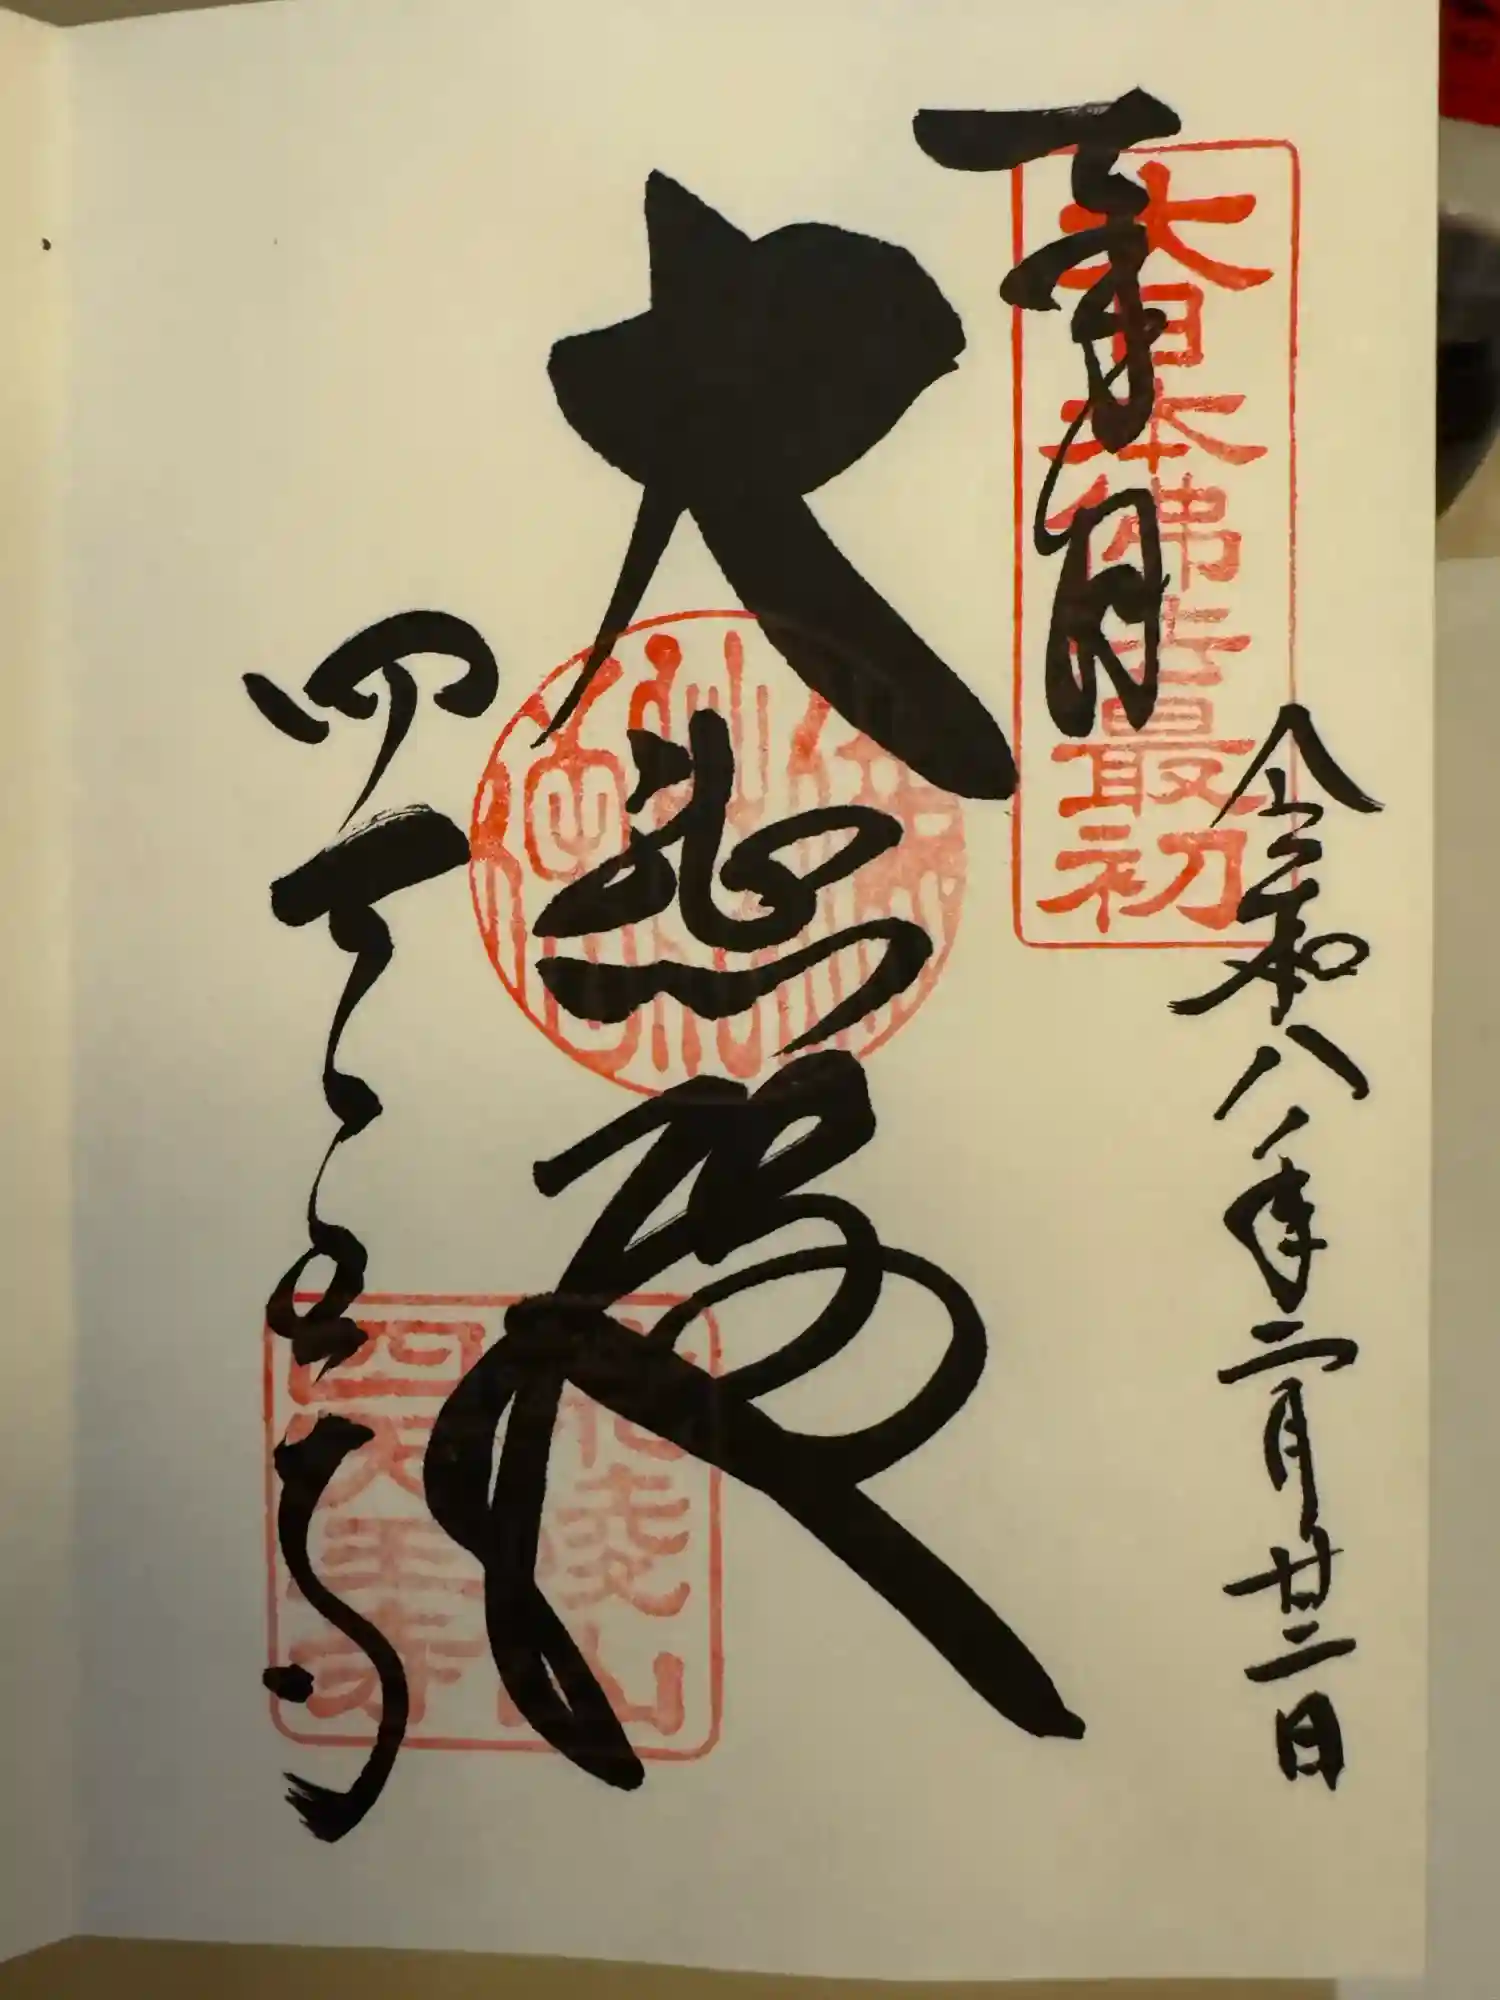 奉拝
大日本佛法最初
令和八年二月廿二日
大悲殿
四天王寺
荒陵山
四天王寺